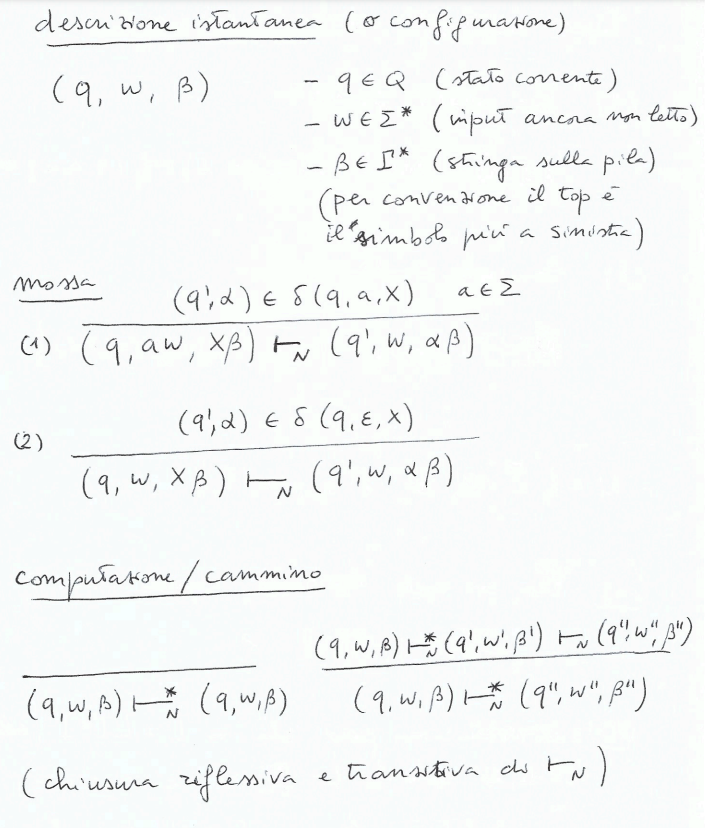 descrizione istantanea (o configurazione)
(q, w, β) - q ∈ Q (stato corrente)
- w ∈ Σ* (input ancora non letto)
- β ∈ Γ* (stringa sulla pila)
(per convenzione il top è
il simbolo più a sinistra)
mossa (q', α) ∈ δ(q, a, X) a ∈ Σ
(1) (q, aw, Xβ) ⊢N (q', w, αβ)
(q', α) ∈ δ(q, ε, X)
(2)
(q, w, Xβ) ⊢N (q', w, αβ)
computazione / cammino
(q, w, β) ⊢*N (q', w', β') ⊢N (q'', w'', β'')
(q, w, β) ⊢*N (q, w, β) (q, w, β) ⊢*N (q'', w'', β'')
(chiusura riflessiva e transitiva di ⊢N)